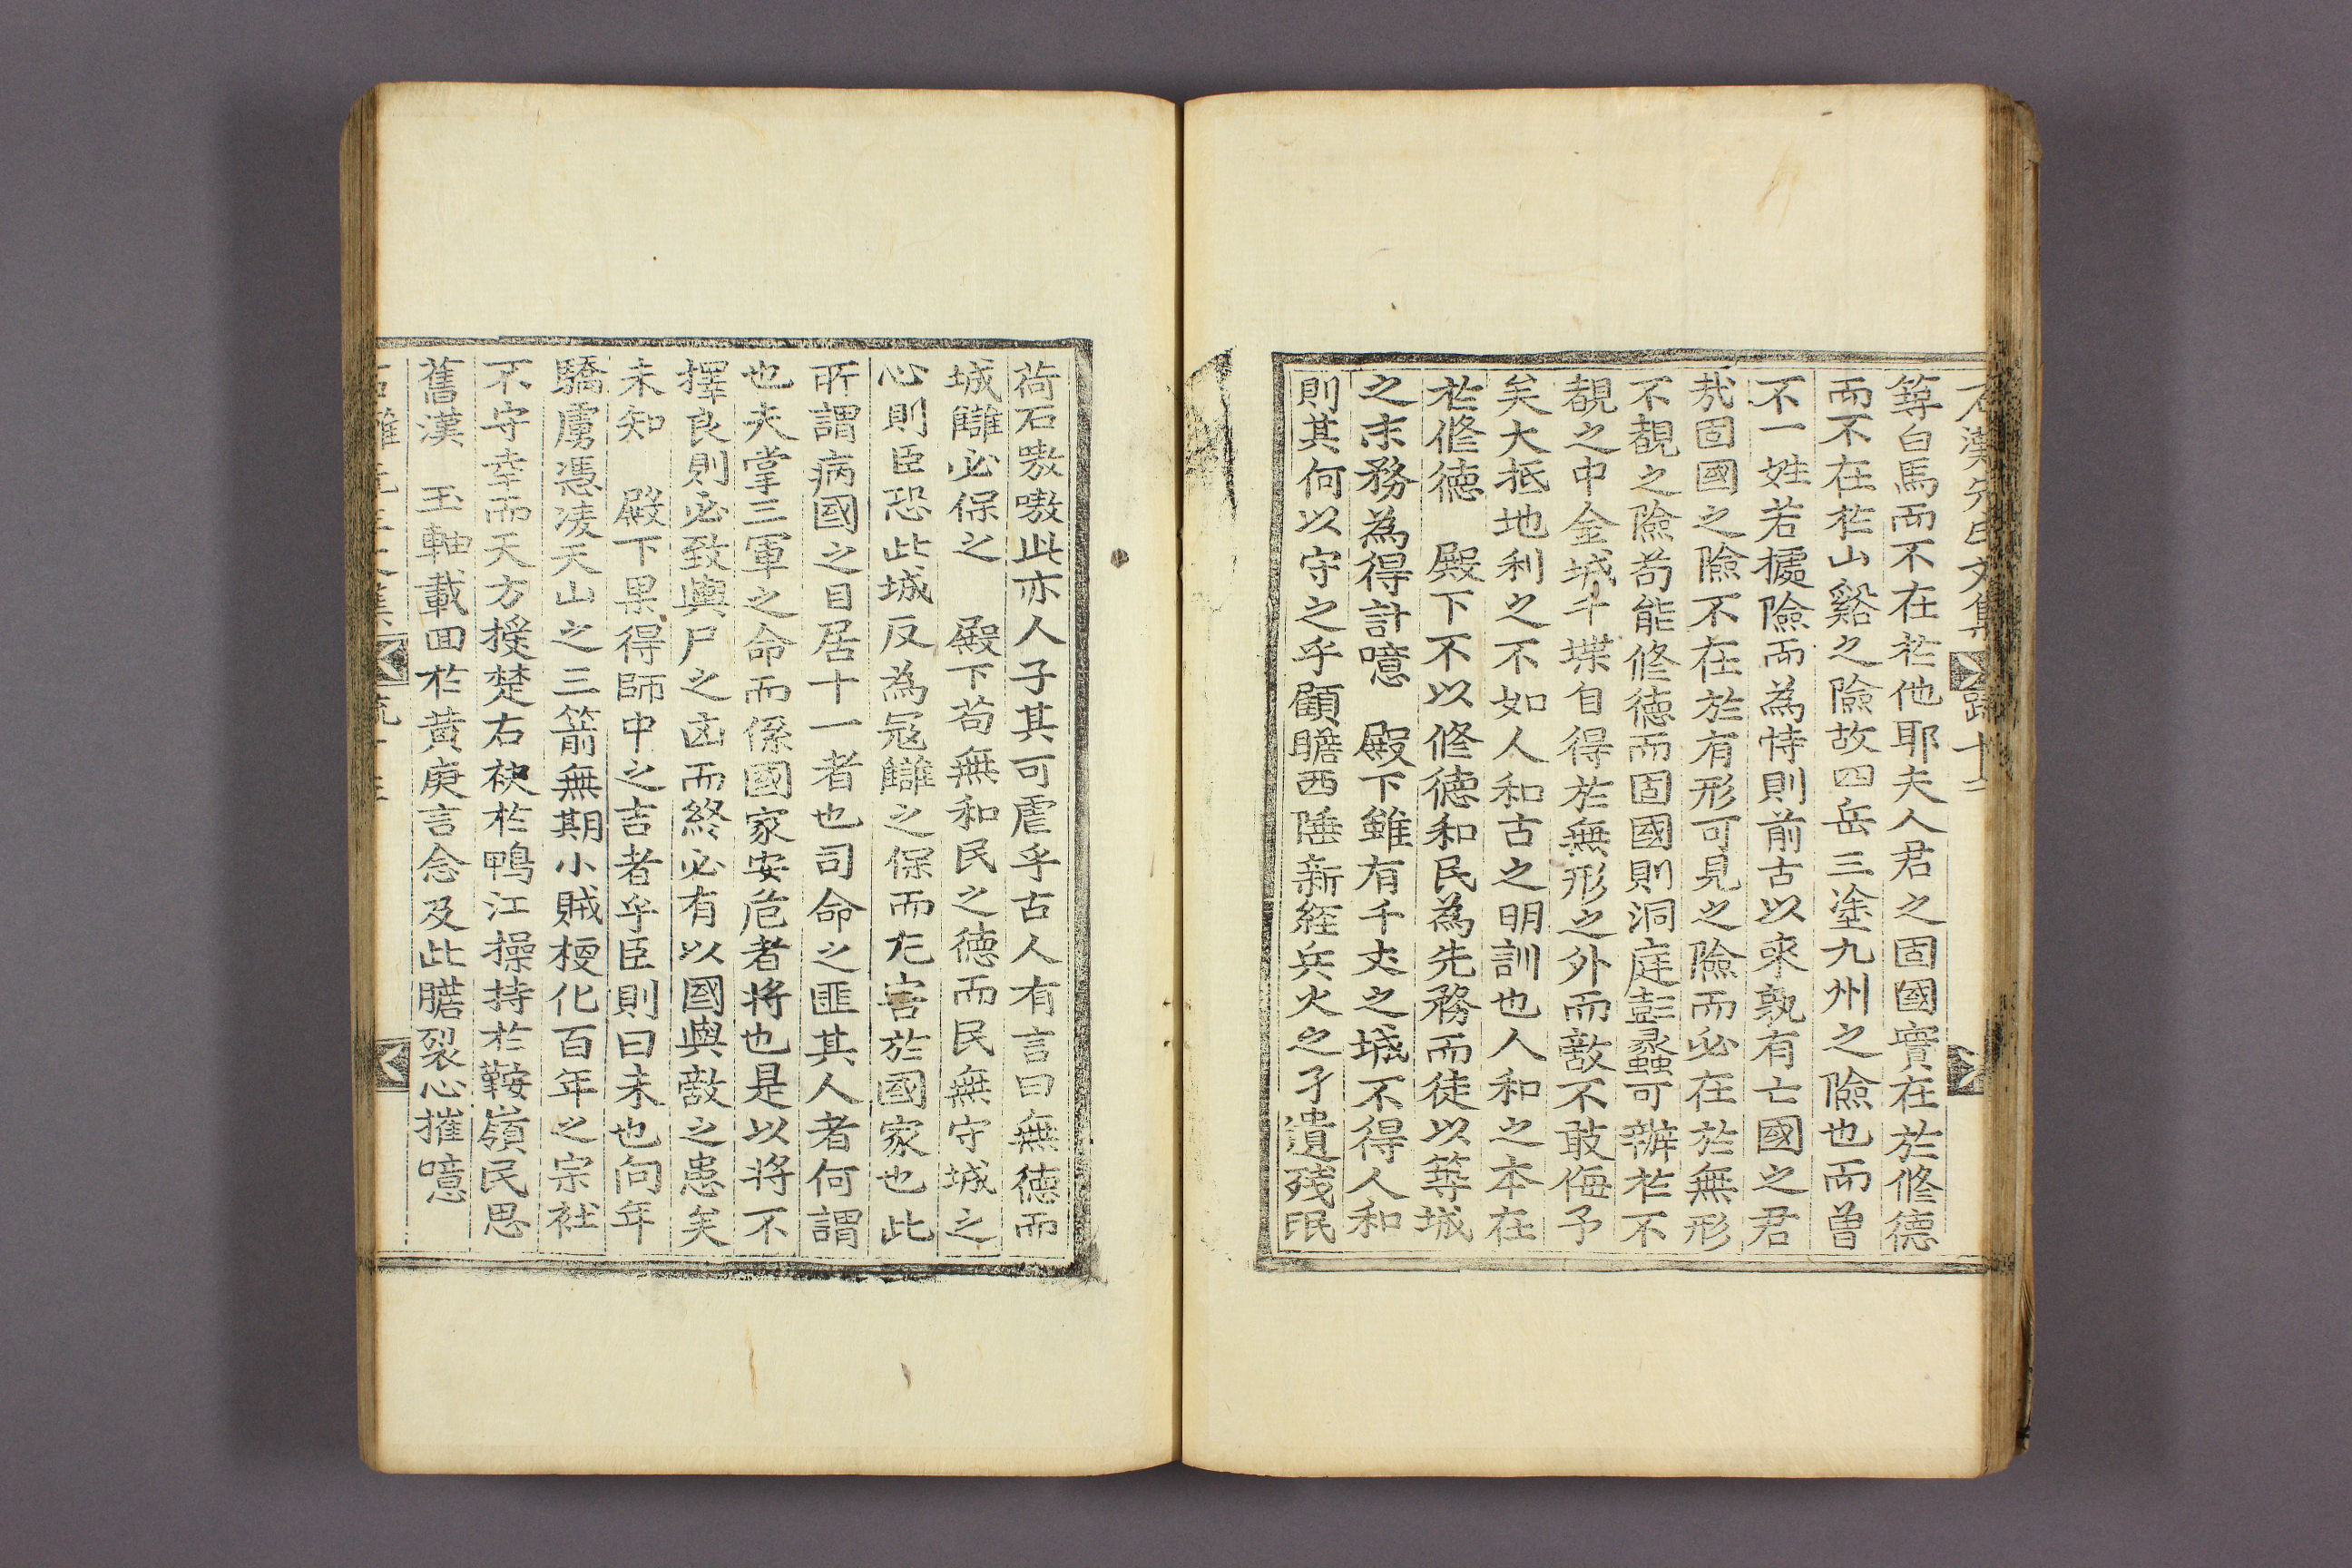 石漢先生文集 疏 十二
築白馬而不在於他耶夫人君之固國實在於修德
而不在於山谿之險故四岳三塗九州之險也而曾
不一姓若據險而為恃則前古以來孰有亡國之君
㢤固國之險不在於有形可見之險而必在於無形
不覩之險苟能修德而固國則洞庭彭蠡可辦於不
覩之中金城千堞自得於無形之外而敵不敢侮予
矣大抵地利之不如人和古之明訓也人和之本在
於修德 殿下不以修德和民為先務而徒以築城
之末務為得計噫 殿下雖有千丈之城不得人和
則其何以守之乎顧瞻西陲新經兵火之孑遺殘氓
荷石嗷嗷此亦人子其可虐乎古人有言曰無德而
城讎必保之 殿下苟無和民之德而民無守城之
心則臣恐此城反為冦讎之保而尤害於國家也此
所謂病國之目居十一者也司命之匪其人者何謂
也夫掌三軍之命而係國家安危者將也是以將不
擇良則必致輿尸之凶而終必有以國與敵之患矣
未知 殿下果得師中之吉者乎臣則曰未也向年
驕虜憑凌天山之三箭無期小賊梗化百年之宗社
不守幸而天方授楚右袂於鴨江操持於鞍嶺民思
舊漢 玉軸載回於黃庚言念及此膽裂心摧噫